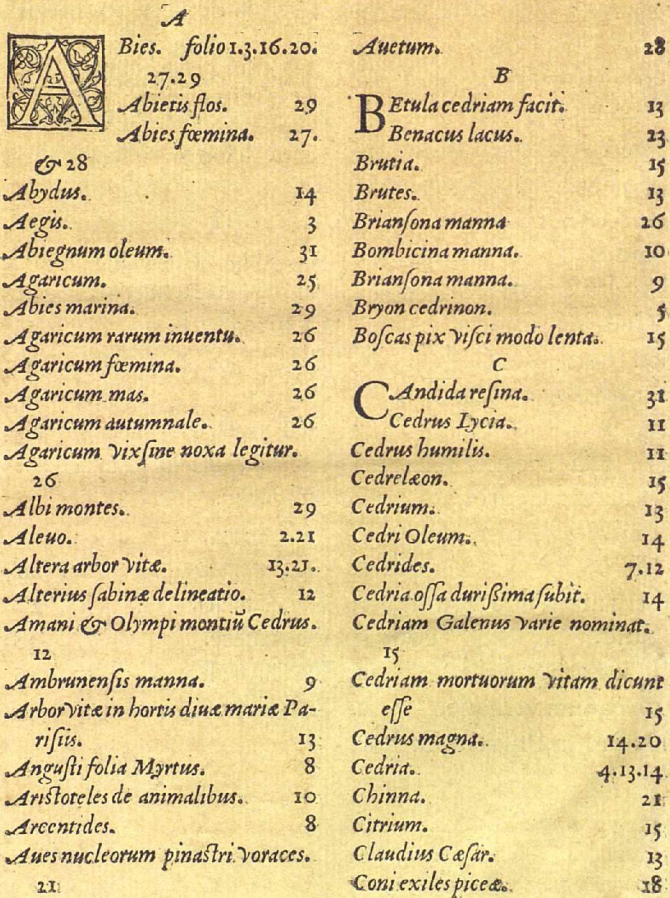 A
ABies. folio 1.3.16.20.
27.29
Abietis flos. 29
Abies fœmina. 27.
& 28
Abydus. 14
Aegis. 3
Abiegnum oleum. 31
Agaricum. 25
Abies marina. 29
Agaricum rarum inuentu. 26
Agaricum fœmina. 26
Agaricum mas. 26
Agaricum autumnale. 26
Agaricum vix ſine noxa legitur.
26
Albi montes. 29
Aleuo. 2.21
Altera arbor vitæ. 13.21.
Alterius ſabinæ delineatio. 12
Amani & Olympi montiũ Cedrus.
12
Ambrunenſis manna. 9
Arbor vitæ in hortis diuæ mariæ Pa-
riſiis. 13
Anguſti folia Myrtus. 8
Ariſtoteles de animalibus. 10
Arcentides. 8
Aues nucleorum pinaſtri voraces.
21
Auetum. 28
B
BEtula cedriam facit. 13
Benacus lacus. 23
Brutia. 15
Brutes. 13
Brianſona manna 26
Bombicina manna. 10
Brianſona manna. 9
Bryon cedrinon. 5
Boſcas pix viſci modo lenta. 15
C
CAndida reſina. 31
Cedrus Lycia. 11
Cedrus humilis. 11
Cedrelæon. 15
Cedrium. 13
Cedri Oleum. 14
Cedrides. 7.12
Cedria oſſa durißima ſubit. 14
Cedriam Galenus varie nominat.
15
Cedriam mortuorum vitam dicunt
eſſe 15
Cedrus magna. 14.20
Cedria. 4.13.14
Chinna. 21
Citrium. 15
Claudius Cæſar. 13
Coni exiles piceæ. 18